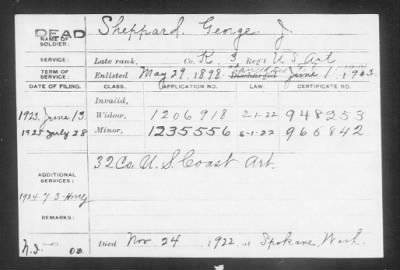 DEAD
NAME OF SOLDIER: Sheppard, George J.
SERVICE: Late rank, Co. K, 3 Reg't U S Art
TERM OF SERVICE: Enlisted May 29, 1898 Discharged June 1, 1903
DATE OF FILING. CLASS. APPLICATION NO. LAW CERTIFICATE NO.
Invalid,
1923 June 13 Widow, 1206918 5-1-22 948253
1925 July 28 Minor, 1235556 5-1-22 966842
ADDITIONAL SERVICES: 32 Co. U. S. Coast Art.
REMARKS:
Died Nov. 24, 1922, at Spokane, Wash.